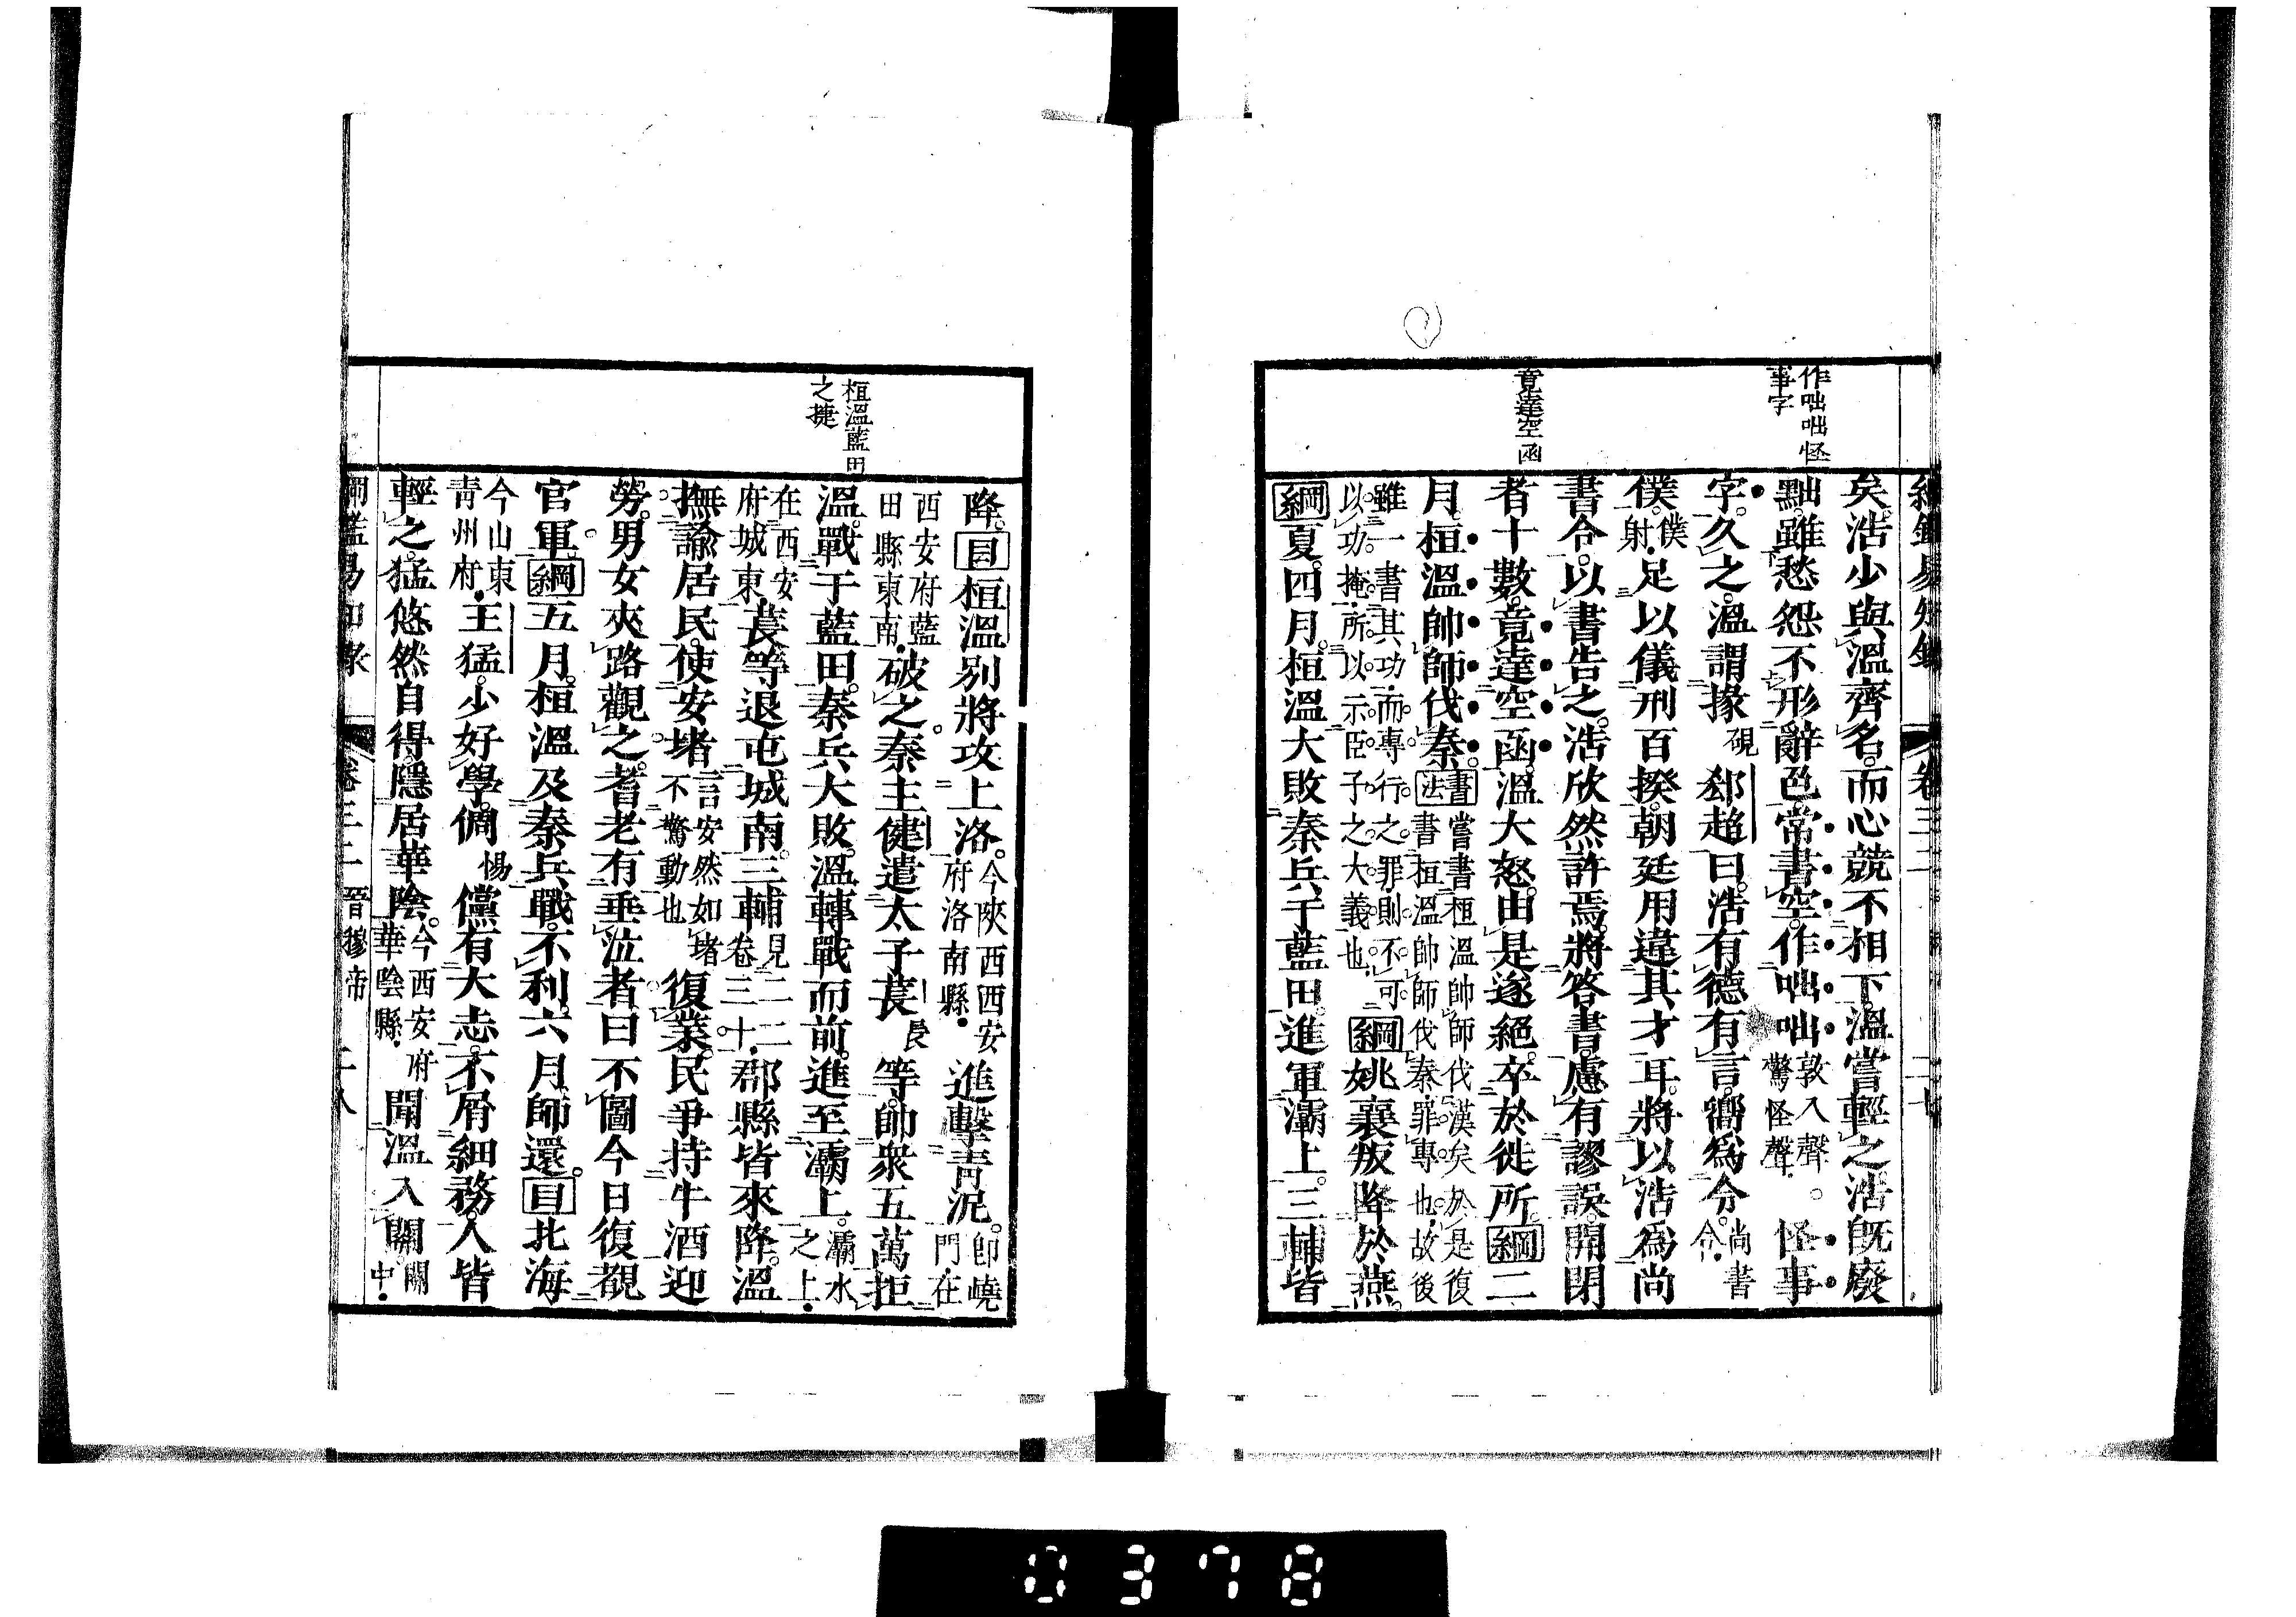 作咄咄怪
事字
竟達空函
矣。浩少與溫齊名。而心競不相下。溫嘗輕之。浩既廢
黜。雖愁怨不形辭色。常書空。作咄咄敦入聲驚怪聲。怪事
字。久之。溫謂掾硯郄超曰。浩有德有言。嚮爲令尚書令。
僕僕射。足以儀刑百揆。朝廷用違其才耳。將以浩爲尚
書令。以書告之。浩欣然許焉。將答書。慮有謬誤。開閉
者十數。竟達空函。溫大怒。由是遂絕。卒於徙所綱二
月。桓溫帥師伐秦。書法嘗書桓溫帥師伐漢矣於是復書桓溫帥師伐秦罪專也故後
雖一書其功而專行之罪則不可以功掩所以示臣子之大義也綱姚襄叛降於燕。
綱夏。四月。桓溫大敗秦兵于藍田。進軍灞上。三輔皆
桓溫藍田
之捷
降。目桓溫別將攻上洛。今陝西西安府洛南縣進擊青泥。卽嶢門在
西安府藍田縣東南破之。秦主健遣太子萇長等。帥衆五萬拒
溫。戰于藍田。秦兵大敗。溫轉戰而前。進至灞上。灞水之上
在西安府城東萇等退屯城南。三輔見二二卷三十郡縣皆來降。溫
撫諭居民。使安堵言安然如堵不驚動也復業。民爭持牛酒迎
勞。男女夾路觀之。耆老有垂泣者曰。不圖今日復覩
官軍。綱五月。桓溫及秦兵戰。不利。六月。師還。目北海
今山東青州府王猛。少好學。倜惕儻有大志。不屑細務。人皆
輕之。猛悠然自得。隱居華陰。今西安府華陰縣聞溫入關。關中
卷三二 晉穆帝
0378